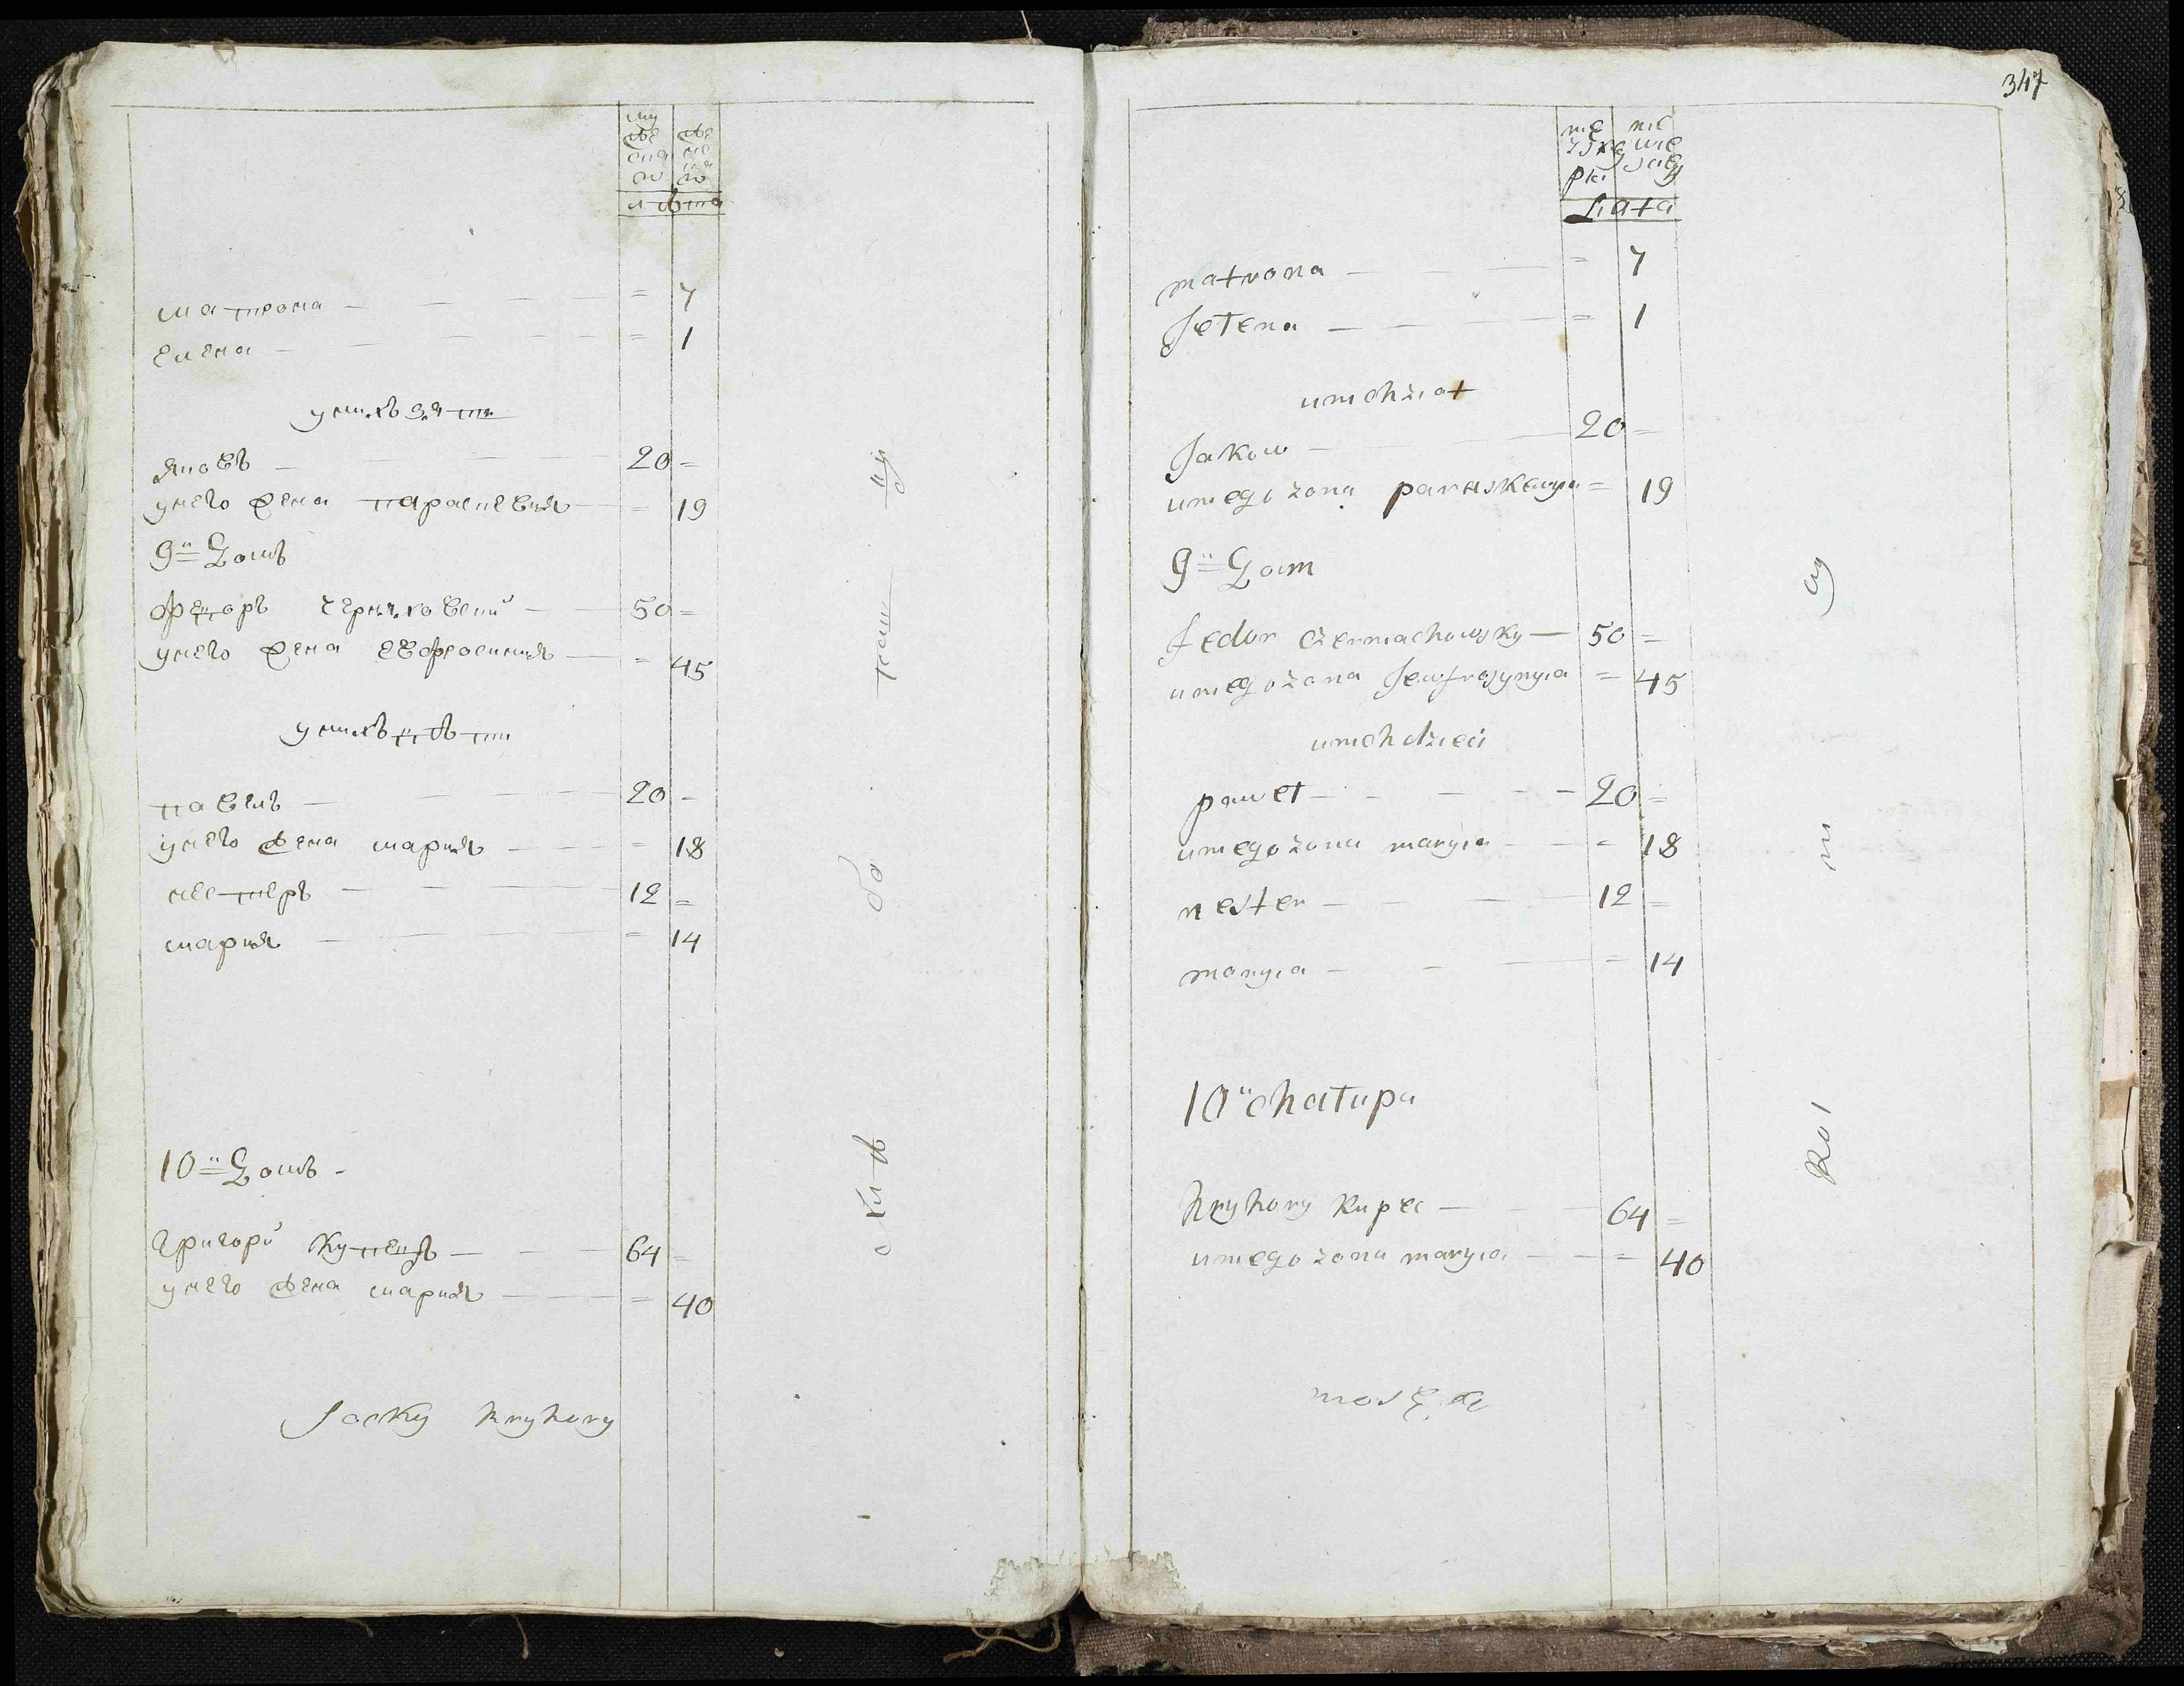 му
же
ска
го
же
нс
ка
го
лѣта
матрона — = 7
елена — = 1
у нихъ зять
яковъ — 20 =
у него жена парасковия — = 19
9й Домъ
Федоръ Черняховский — 50 =
у него жена евфросиния — = 45
у нихъ дѣти
павелъ — 20 =
у него жена мария — = 18
нестеръ — 12 =
мария — = 14
10й Домъ
Григорий Купецъ — 64 =
у него жена мария — = 40
Jacky hryhory
347
Lata
matrona — = 7
Jełena — = 1
unich ziat
Jakow — 20 =
uniego zona paraskewya = 19
9й Dom
Fedor Czerniachowsky — 50 =
uniego zona Jewfrosynyia = 45
unich dzieci
paweł — 20 =
uniego zona maryia — = 18
nester — 12 =
maryia — = 14
10й chałupa
hryhory Kupec — 64 =
uniego zona maryia — = 40